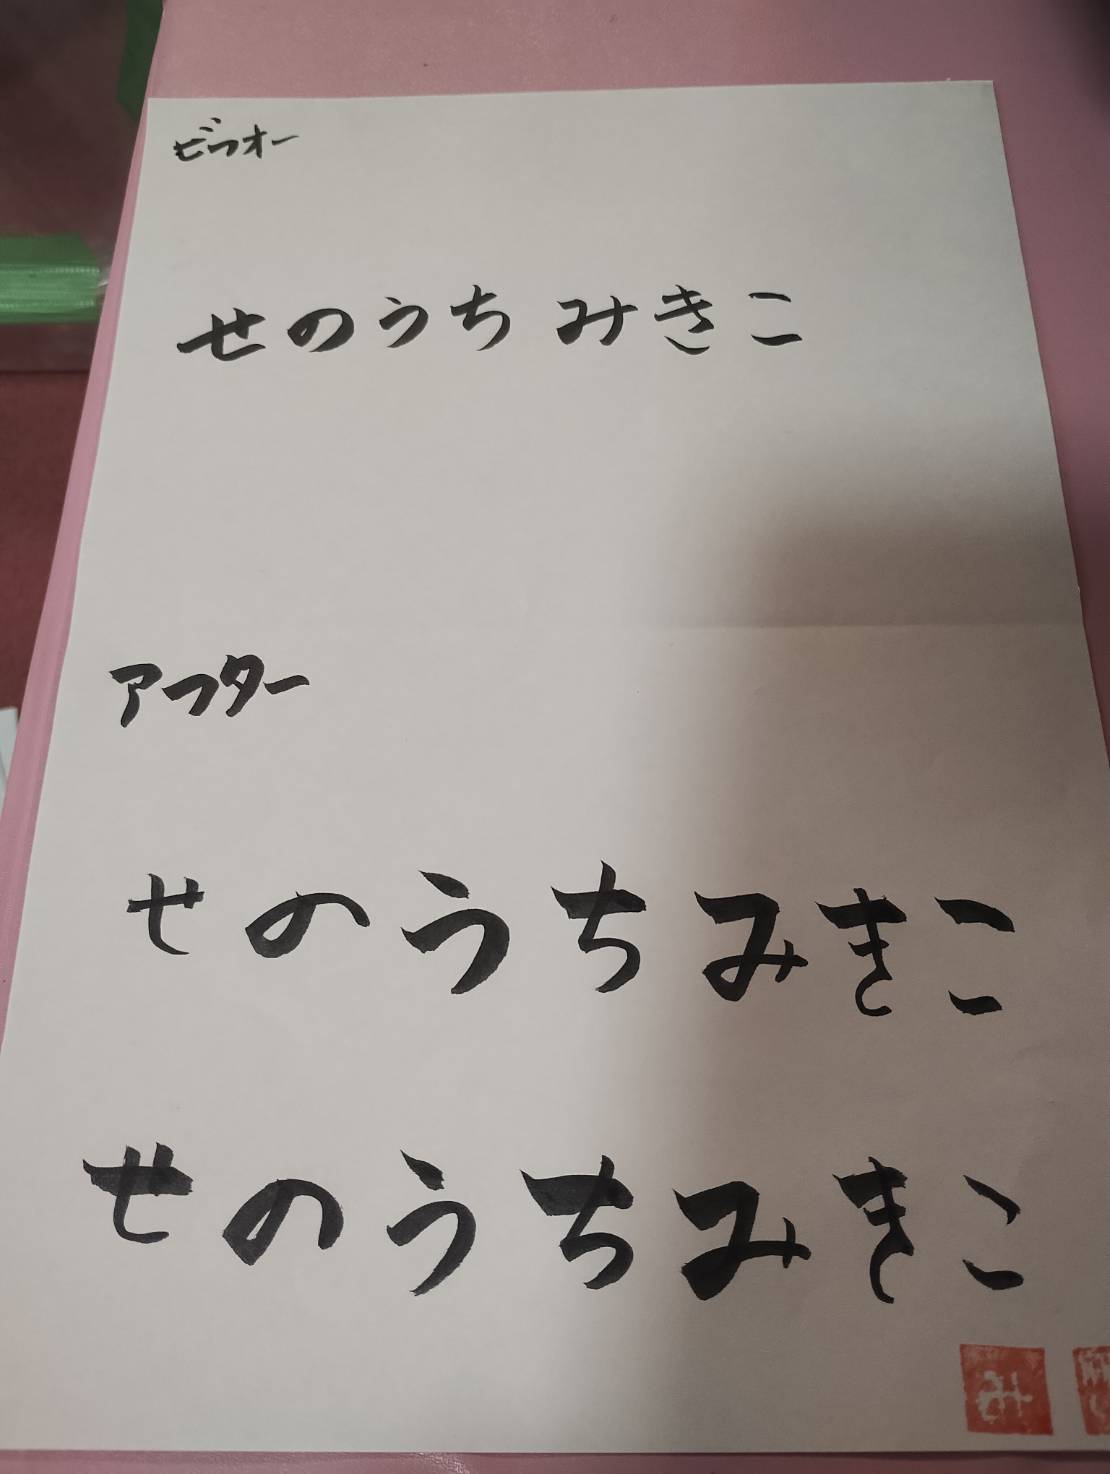 ビフォー
せのうち みきこ
アフター
せのうちみきこ
せのうちみきこ
み